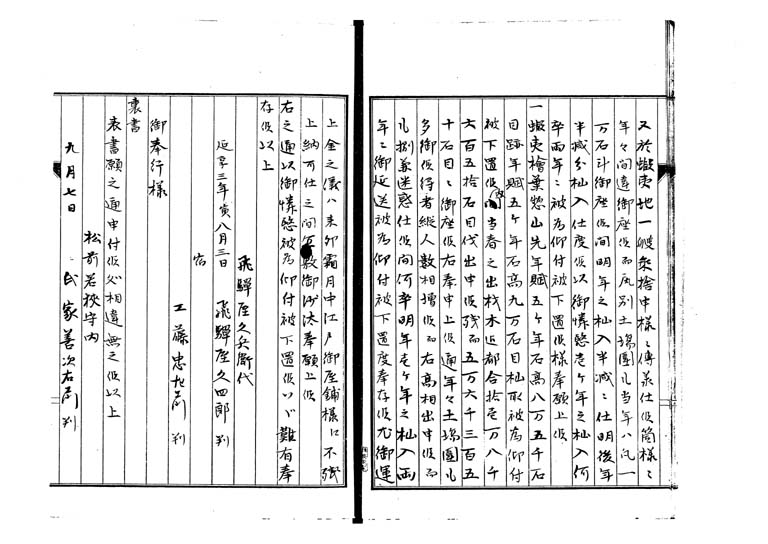 又於蝦夷地一艘乗捨申様ニ傳承仕候筒様ニ
年々間違御座候而凡別土場圍凡当年八九一
万石斗御座候間明年之杣入半減ニ仕明後年
半減分杣入仕度候以御憐愍壱ヶ年之杣入何
卒両年ニ被為仰付被下置候様奉願上候
一蝦夷檜葉惣山先年賦五ヶ年石高八万五千石
目跡年賦五ヶ年石高九万石目杣取被為仰付
被下置候内当春之出材木迄都合拾壱万八千
六百五拾石目伐出申候残而五万六千三百五
十石目ニ御座候右奉申上候通年々土場圍凡
多御候得者縦人数相増候而右高相出申候而
凡捌兼迷惑仕候間何卒明年壱ヶ年之杣入両
年ニ御延送被為仰付被下置度奉存候尤御運
上金之儀ハ来卯霜月中江戸御座舗様江不残
上納可仕之間宜敷御沙汰奉願上候
右之通以御憐愍被為仰付被下置候ハヽ難有奉
存候以上
飛騨屋久兵衛代
延享三年寅八月三日 飛騨屋久四郎 判
宿
工藤忠左衛門 判
御奉行様
裏書
表書願之通申付候必相違無之候以上
松前若狭守内
九月七日 氏家善次右衛門 判